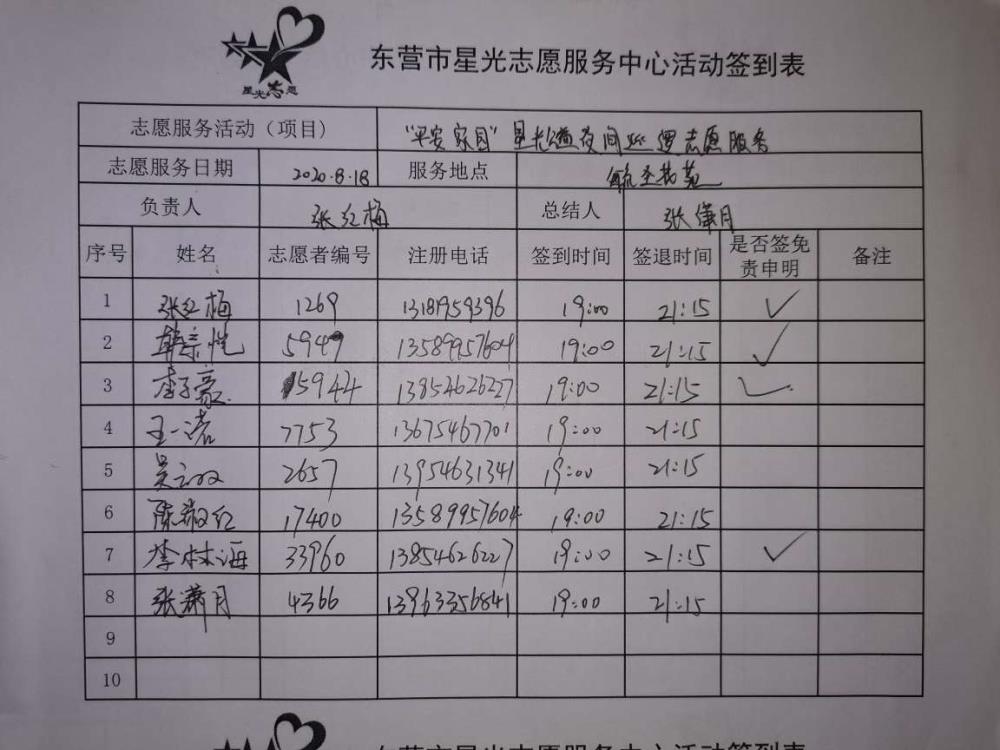 星光志愿
东营市星光志愿服务中心活动签到表
志愿服务活动（项目） "平安家园"星光公益夜间巡逻志愿服务
志愿服务日期 2020.8.18 服务地点
负责人 张红梅 总结人 张潇月
序号 姓名 志愿者编号 注册电话 签到时间 签退时间 是否签免责申明 备注
1 张红梅 1269 13181959396 19:00 21:15 ✓
2 韩宗恺 5947 13589957604 19:00 21:15 ✓
3 李子豪 15944 13854626227 19:00 21:15 ✓
4 王一诺 7753 13675467701 19:00 21:15
5 2657 13954631341 19:00 21:15
6 陈淑红 17400 13589957604 19:00 21:15
7 李林海 33960 13854626227 19:00 21:15 ✓
8 张潇月 4366 13963356841 19:00 21:15
9
10
东营市星光志愿服务中心活动签到表